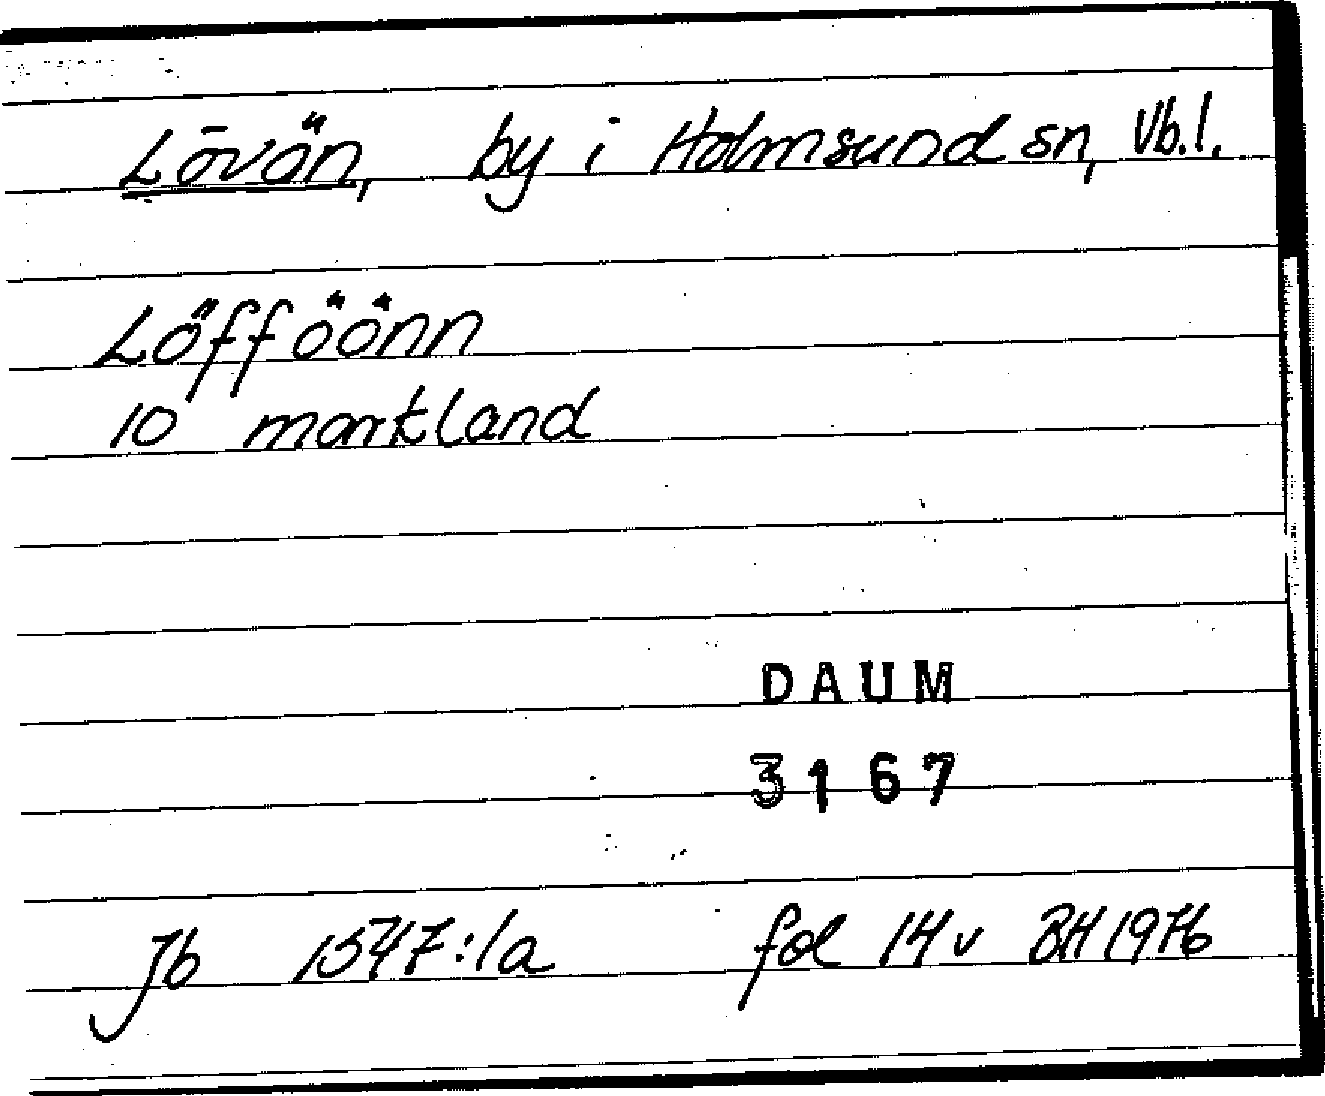 Lövön, by i Holmsund sn, Vb.l.
Löfföönn
10 markland
DAUM
3167
Jb 1547:1a fol 14v BH 1976